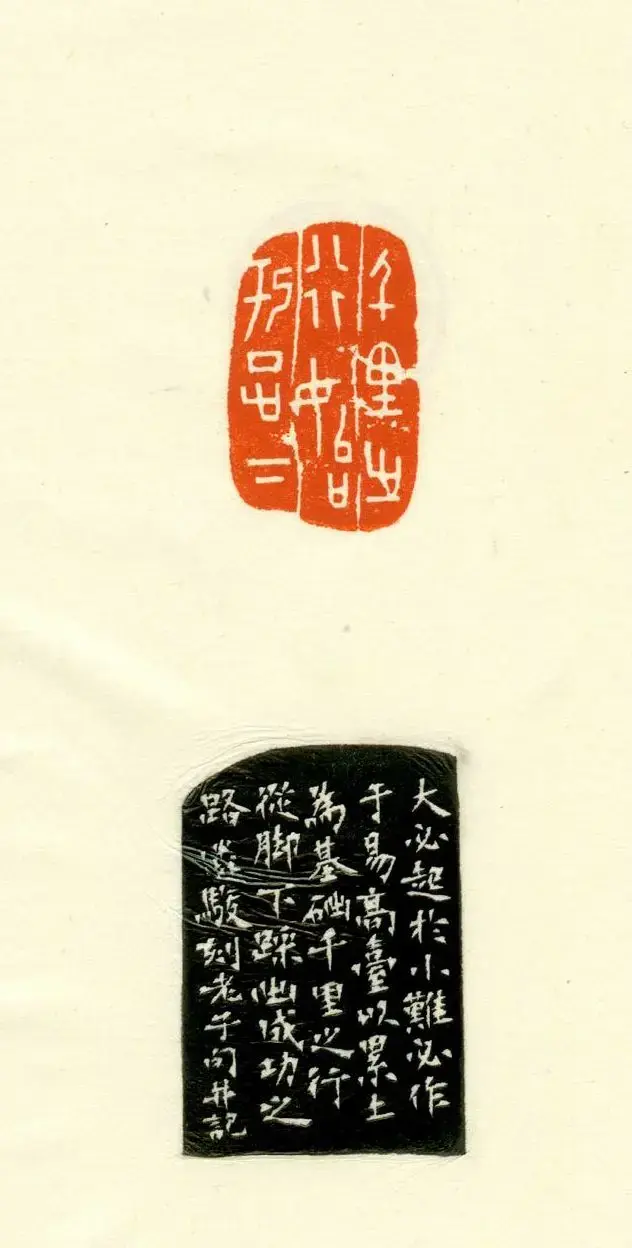 千里之
行始
於足下
大必起於小難必作
于易高臺以累土
為基礎千里之行
從脚下踩出成功之
路駿刻老子句并記